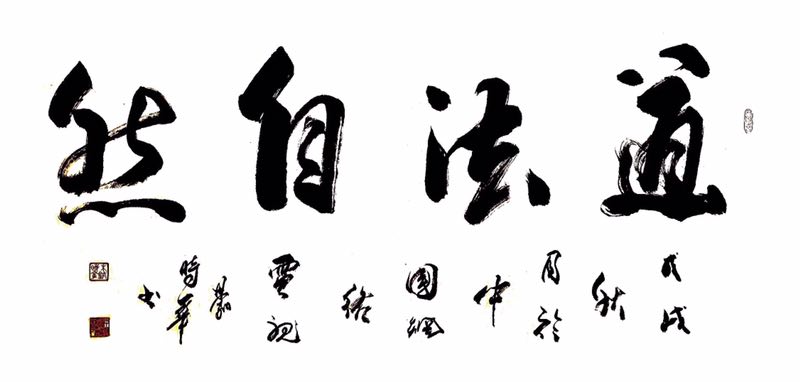 道法自然
戊戌秋月於中國網絡電視時華書